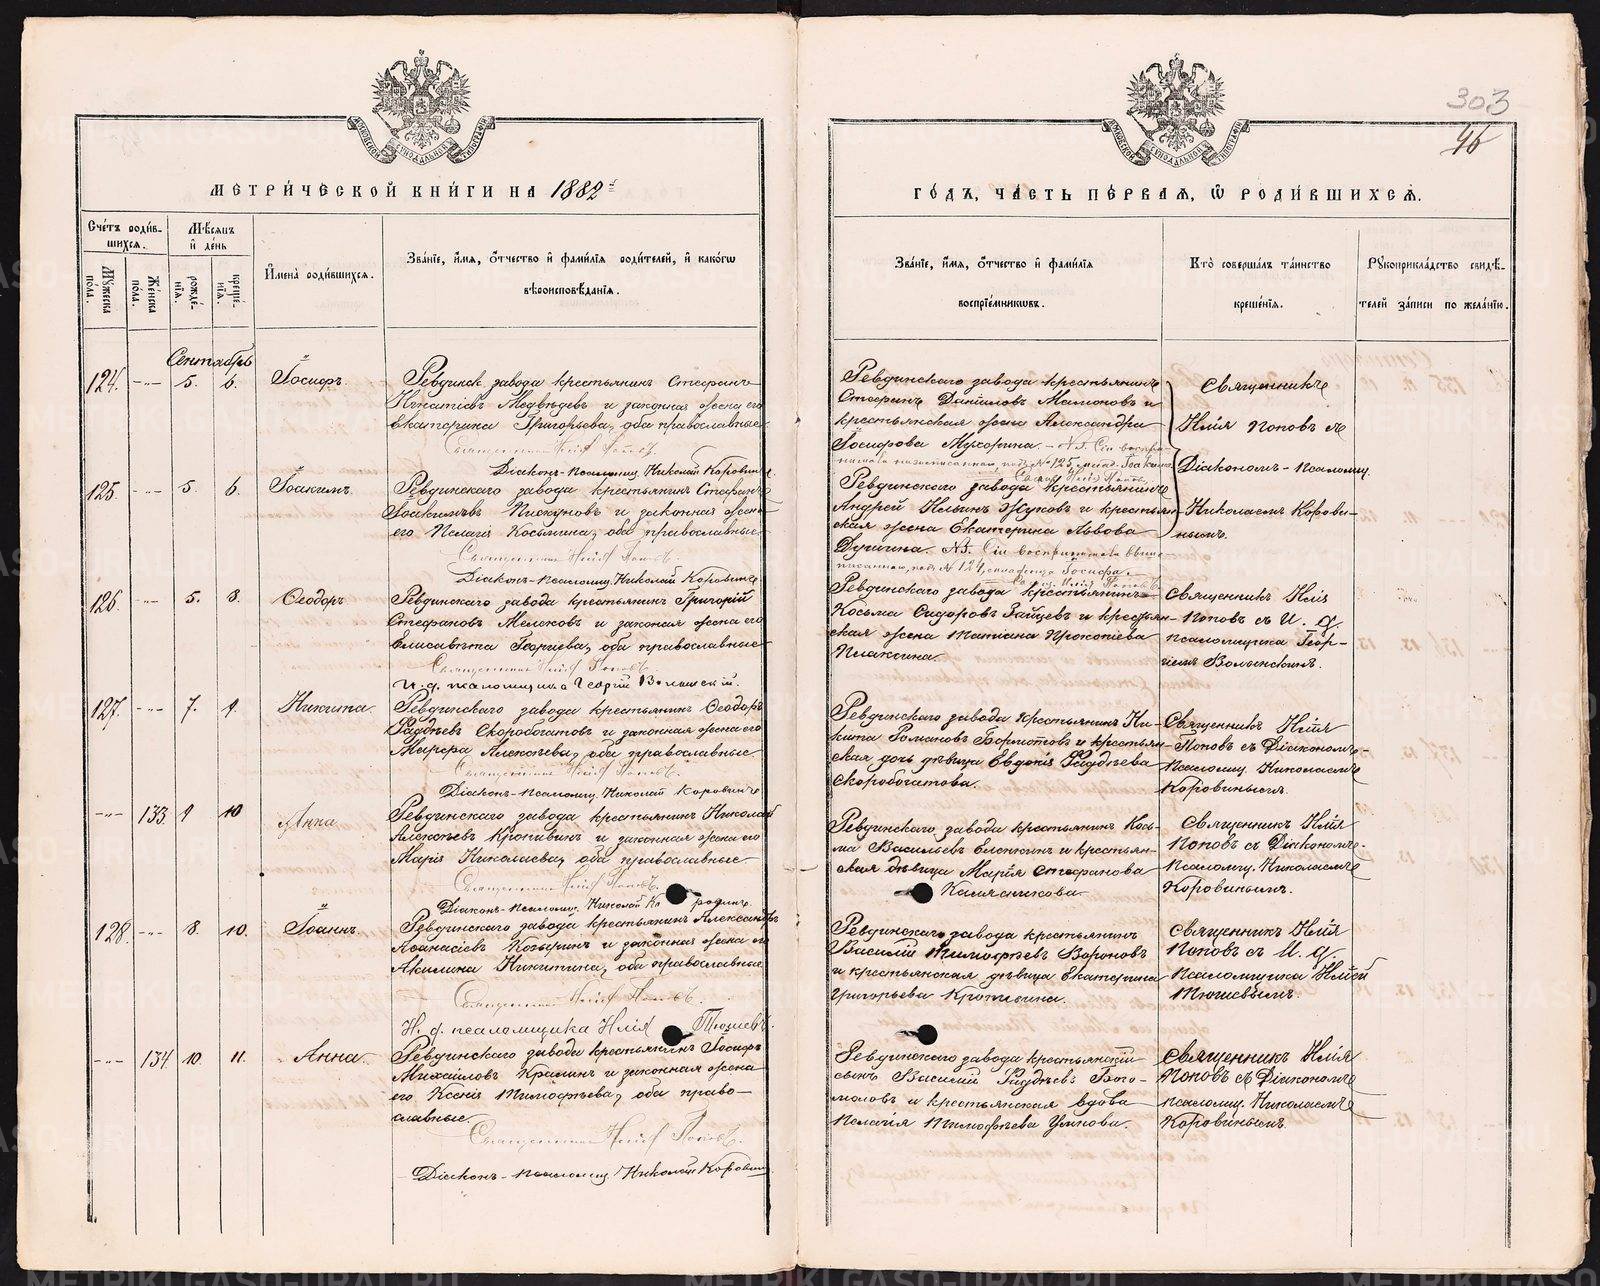 303
46
МЕТРИ́ЧЕСКОЙ КНИ́ГИ НА 1882 й
ГО́ДЪ, ЧА́СТЬ ПЕ́РВАЯ, Ѡ РОДИ́ВШИХСЯ.
Сче́тъ роди́в-
шихся.
Мѣсяцъ
и́ де́нь
Му́жеска
по́ла.
Же́нска
по́ла.
рожде́-
нія.
креще́-
нія.
И́мена̀ роди́вшихся.
Зва́ніе, и́мя, ѻ́тчество и́ фами́лія роди́телей, и́ како́гѡ
вѣроисповѣ́данія.
Зва́ніе, и́мя, ѻ́тчество и́ фами́лія
воспріе́мниковъ.
Кто̀ соверша́лъ та́инство
креще́нія.
Рукоприкла́дство свидѣ́-
телей за́писи по жела́нію.
Сентябрь
124. -"- 5. 6. Іосифъ.
Ревдинск. завода крестьянинъ Стефанъ
Игнатіевъ Медвѣдевъ и законная жена его
Екатерина Григорьева, оба православные
Священникъ Илія Поповъ.
Діаконъ-Псаломщ. Николай Коровинъ.
Ревдинскаго завода крестьянинъ
Стефанъ Даніиловъ Мамоновъ и
крестьянская жена Александра
Іосифова Мухорина. – NB. Сіи воспріе-
125, млад. Іоакима.
Священ. Илія Поповъ.
Священникъ
Илія Поповъ съ
Діакономъ-псаломщ.
Николаемъ Корови-
нымъ.
125. -"- 5. 6. Іоакимъ.
Ревдинскаго завода крестьянинъ Стефанъ
Іоакимовъ Пискуновъ и законная жена
его Пелагія Косьмина, оба православные
Священникъ Илія Поповъ.
Діаконъ-псаломщ. Николай Коровинъ
Ревдинскаго завода крестьянинъ
Андрей Ильинъ Жуковъ и крестьян-
ская жена Екатерина Львова
NB. Сіи воспріемники выше-
писаннаго, подъ № 124, младенца Іосифа.
Свящ. Илія Поповъ.
126. -"- 5. 8. Ѳеодоръ
Ревдинскаго завода крестьянинъ Григорій
Стефановъ Мелековъ и законная жена его
Елисавета Георгіева, оба православные
Священникъ Илія Поповъ.
И. д. псаломщика Георгій Волынскій.
Ревдинскаго завода крестьянинъ
Косьма Сидоровъ Зайцевъ и крестьян-
ская жена Татіана Прокопіева
Плаксина.
Священникъ Илія
Поповъ съ И. д.
псаломщика Геор-
гіемъ Волынскимъ.
127. -"- 7. 9. Никита.
Ревдинскаго завода крестьянинъ Ѳеодоръ
Фаддѣевъ Скоробогатовъ и законная жена его
Марѳа Алексѣева, оба православные
Священникъ Илія Поповъ.
Діаконъ-Псаломщ. Николай Коровинъ
Ревдинскаго завода крестьянинъ Ни-
кита Романовъ Бормотовъ и крестьян-
ская дочь дѣвица Евдокія Фаддѣева
Скоробогатова.
Священникъ Илія
Поповъ съ Діакономъ-
Псаломщ. Николаемъ
Коровинымъ.
-"- 133. 9 10 Анна
Ревдинскаго завода крестьянинъ Николай
Алексѣевъ Кропивинъ и законная жена его
Марія Николаева, оба православные
Священникъ Илія Поповъ.
Діаконъ-псаломщ. Николай Коровинъ.
Ревдинскаго завода крестьянинъ Кось-
ма Васильевъ Еленкинъ и крестьян-
ская дѣвица Марія Стефанова
Камяснкова.
Священникъ Илія
Поповъ съ Діакономъ-
Псаломщ. Николаемъ
Коровинымъ.
128. -"- 8. 10. Іоаннъ
Ревдинскаго завода крестьянинъ Александръ
Аѳанасіевъ Козыринъ и законная жена его
Акилина Никитина, оба православные
Священникъ Илія Поповъ.
И. д. псаломщика Илія Тюшевъ.
Ревдинскаго завода крестьянинъ
Василій Тимоѳѣевъ Вороновъ
и крестьянская дѣвица Екатерина
Григорьева Кропивина.
Священникъ Илія
Поповъ съ И. д.
Псаломщика Иліей
Тюшевымъ.
-"- 134 10. 11. Анна
Ревдинскаго завода крестьянинъ Іосифъ
Михайловъ Кралинъ и законная жена
его Ксенія Тимоѳѣева, оба право-
славные.
Священникъ Илія Поповъ.
Діаконъ-псаломщ. Николай Коровинъ
Ревдинскаго завода крестьянскій
сынъ Василій Фаддѣевъ Бого-
моловъ и крестьянская вдова
Пелагія Тимоѳѣева Уткова.
Священникъ Илія
Поповъ съ Діакономъ
псаломщ. Николаемъ
Коровинымъ.